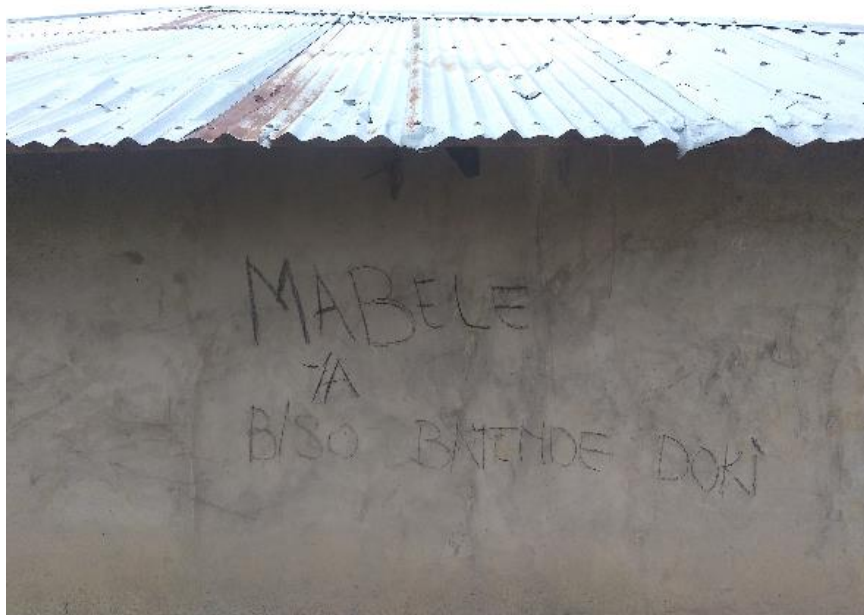 MABELE
YA
BISO BATENDE DOKI